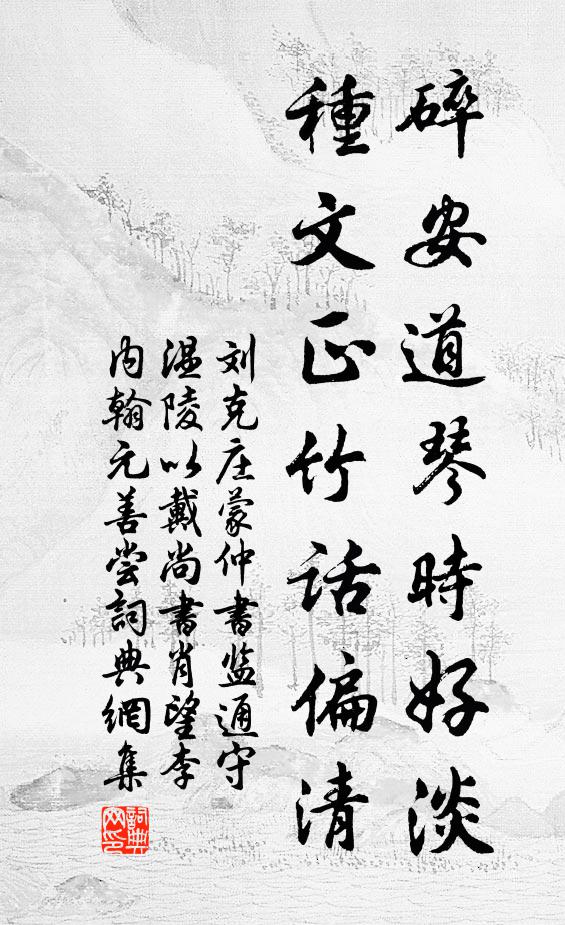 碎安道琴時好淡
種文正竹話偏清
刘克庄蒙仲書监通守
温陵以戴尚書肖望李
内翰元善尝詞典網集
詞典网印